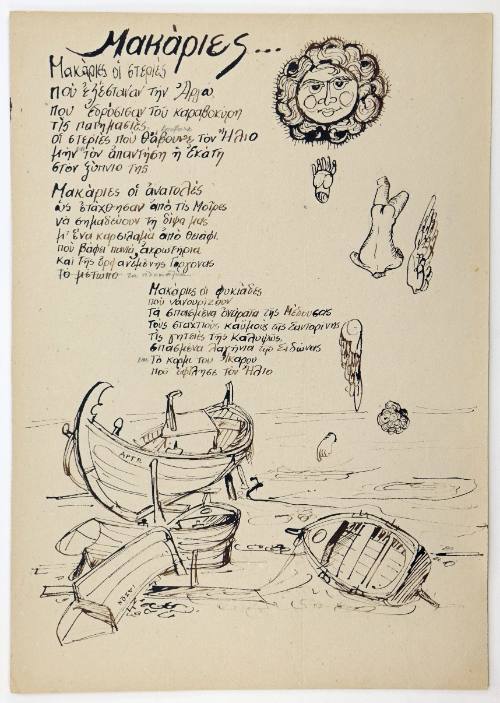 Μακάριες...
Μακάριες οἱ στεριές
ποὺ ἐζέσταναν τὴν Ἀργώ,
που δρόσισαν τοῦ καραβοκύρη
τὶς
οἱ στεριές ποὺ θάβουνε τὸν Ἥλιο
μὴν τὸν ἀπαντήση ἡ Ἑκάτη
στον ξύπνιο της
Μακάριες οἱ ἀνατολές
ὡς ἐτάχθησαν ἀπὸ τὶς Μοῖρες
νὰ σημαδεύουν τὴ δίψα μας
μ' ἕνα καρσιλαμά ἀπὸ θειάφι
ποὺ βάφει πανιά, ἀκρωτήρια
καὶ τῆς ὀργανεμένης Γοργόνας
τὸ μέτωπο
Μακάριες οι φυκιάδες
ποὺ νανουρίζουν
τὰ σπασμένα ὀνείρατα τῆς Μέδουσας
τοὺς σταχτιοὺς καϋμοὺς τῆς Σαντορίνης
τὶς γητειές τῆς Καλυψῶς,
σπασμένα λαγήνια τῆς Σιδώνας
τὸ κορμι τοῦ Ἴκαρου
ποὺ ὁ φίλησε τὸν Ἥλιο
ΑΡΓΩ
ΙΑΣΩΝ